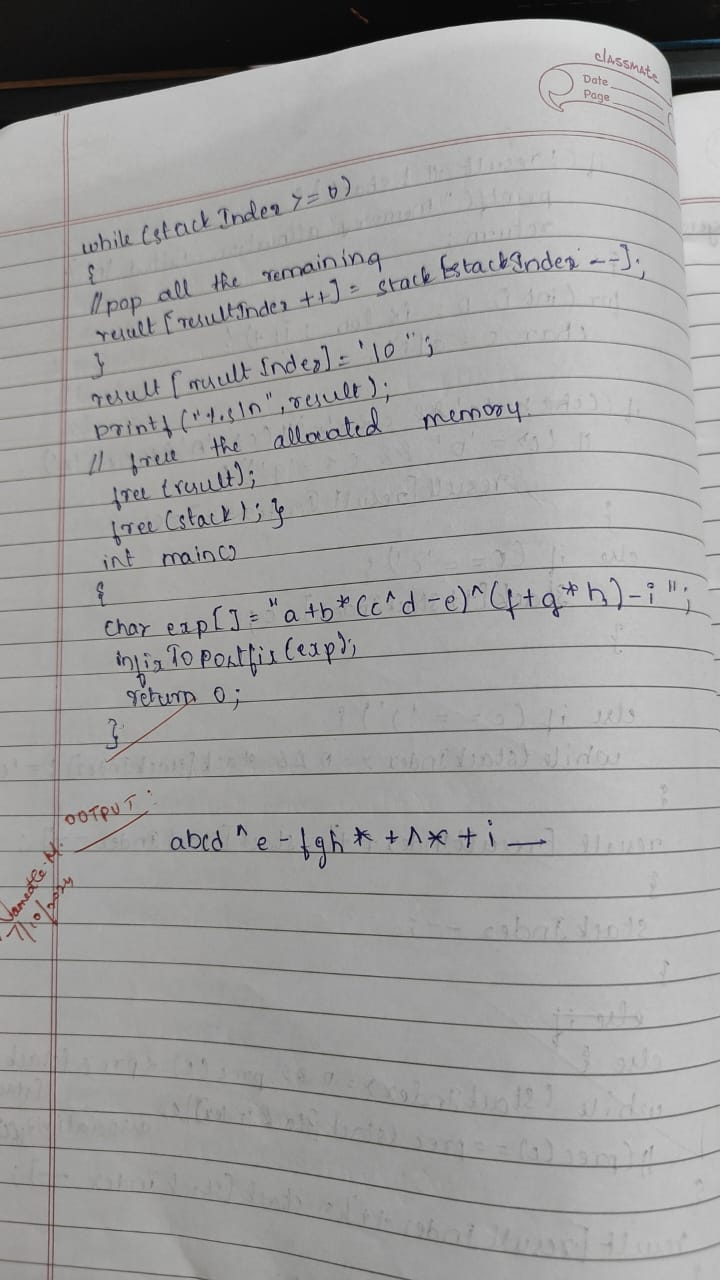 classmate
Date
Page
while (stackIndex >= 0)
{
//pop all the remaining
result [resultIndex ++] = stack [stackIndex --];
}
result [result Index] = '10";
printf ("%s\n", result);
// free the allocated memory.
free (result);
free (stack); }
int main()
{
char exp[] = "a+b*(c^d-e)^(f+g*h)-i";
infixToPostfix(exp);
return 0;
}
OUTPUT:
abcd^e-fgh*+^*+i-
7/10/2024